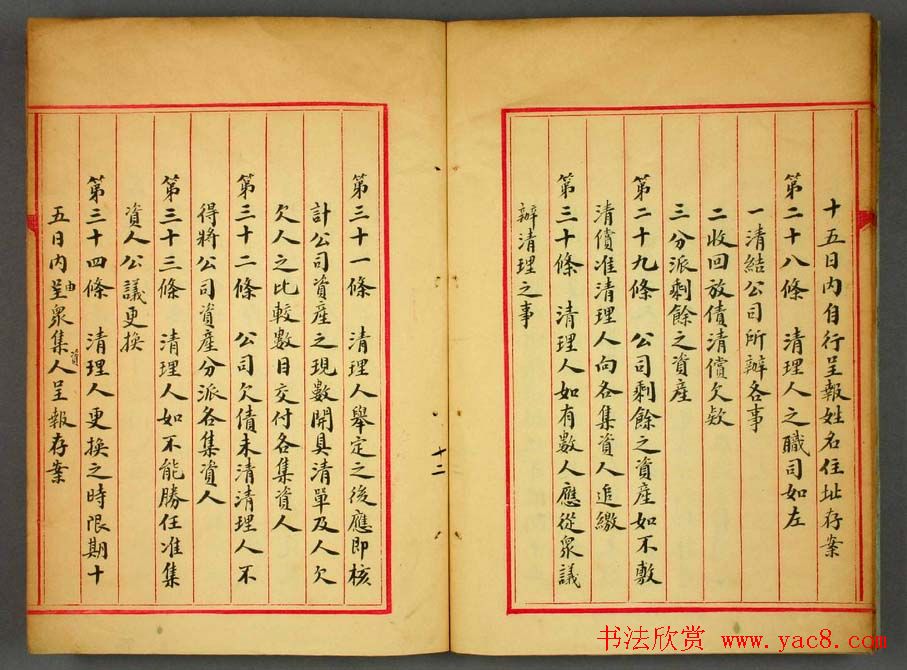 十五日内自行呈報姓名住址存案
第二十八條　清理人之職司如左
一清結公司所辦各事
二收回放債清償欠欵
三分派剩餘之資産
第二十九條　公司剩餘之資産如不敷
清償准清理人向各集資人追繳
第三十條　清理人如有數人應從衆議
辦清理之事
十二
第三十一條　清理人舉定之後應即核
計公司資産之現數開具清單及人欠
欠人之比較數目交付各集資人
第三十二條　公司欠債未清清理人不
得將公司資産分派各集資人
第三十三條　清理人如不能勝任准集
資人公議更換
第三十四條　清理人更換之時限期十
五日内呈由衆集資人呈報存案
书法欣赏 www.yac8.com